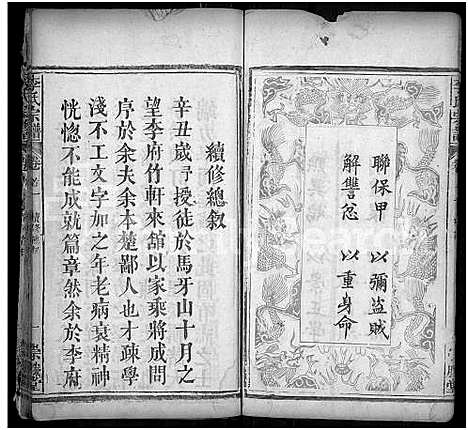 聯保甲 以彌盜賊
解讐忿 以重身命
續修總敘
辛丑歲予授徒於馬牙山十月之
望李府竹軒來舘以家乘將成問
序於余夫余本楚鄙人也才疎學
淺不工文字加之年老病衰精神
恍惚不能成就篇章然余於李府
李氏宗譜
卷首
續修總敘
一